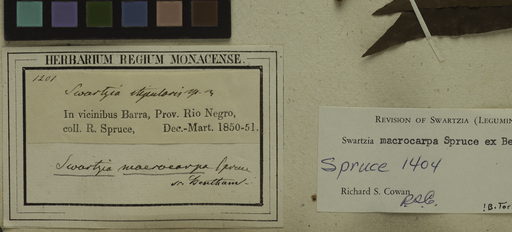 HERBARIUM REGIUM MONACENSE.
1201
Swartzia stipularis
In vicinibus Barra, Prov. Rio Negro,
coll. R. Spruce, Dec.-Mart. 1850-51.
Swartzia macrocarpa Spruce
Bentham.
REVISION OF SWARTZIA (LEGUMIN
Swartzia macrocarpa Spruce ex Be
Spruce 1404
Richard S. Cowan
R.S.C.
!B.Tor